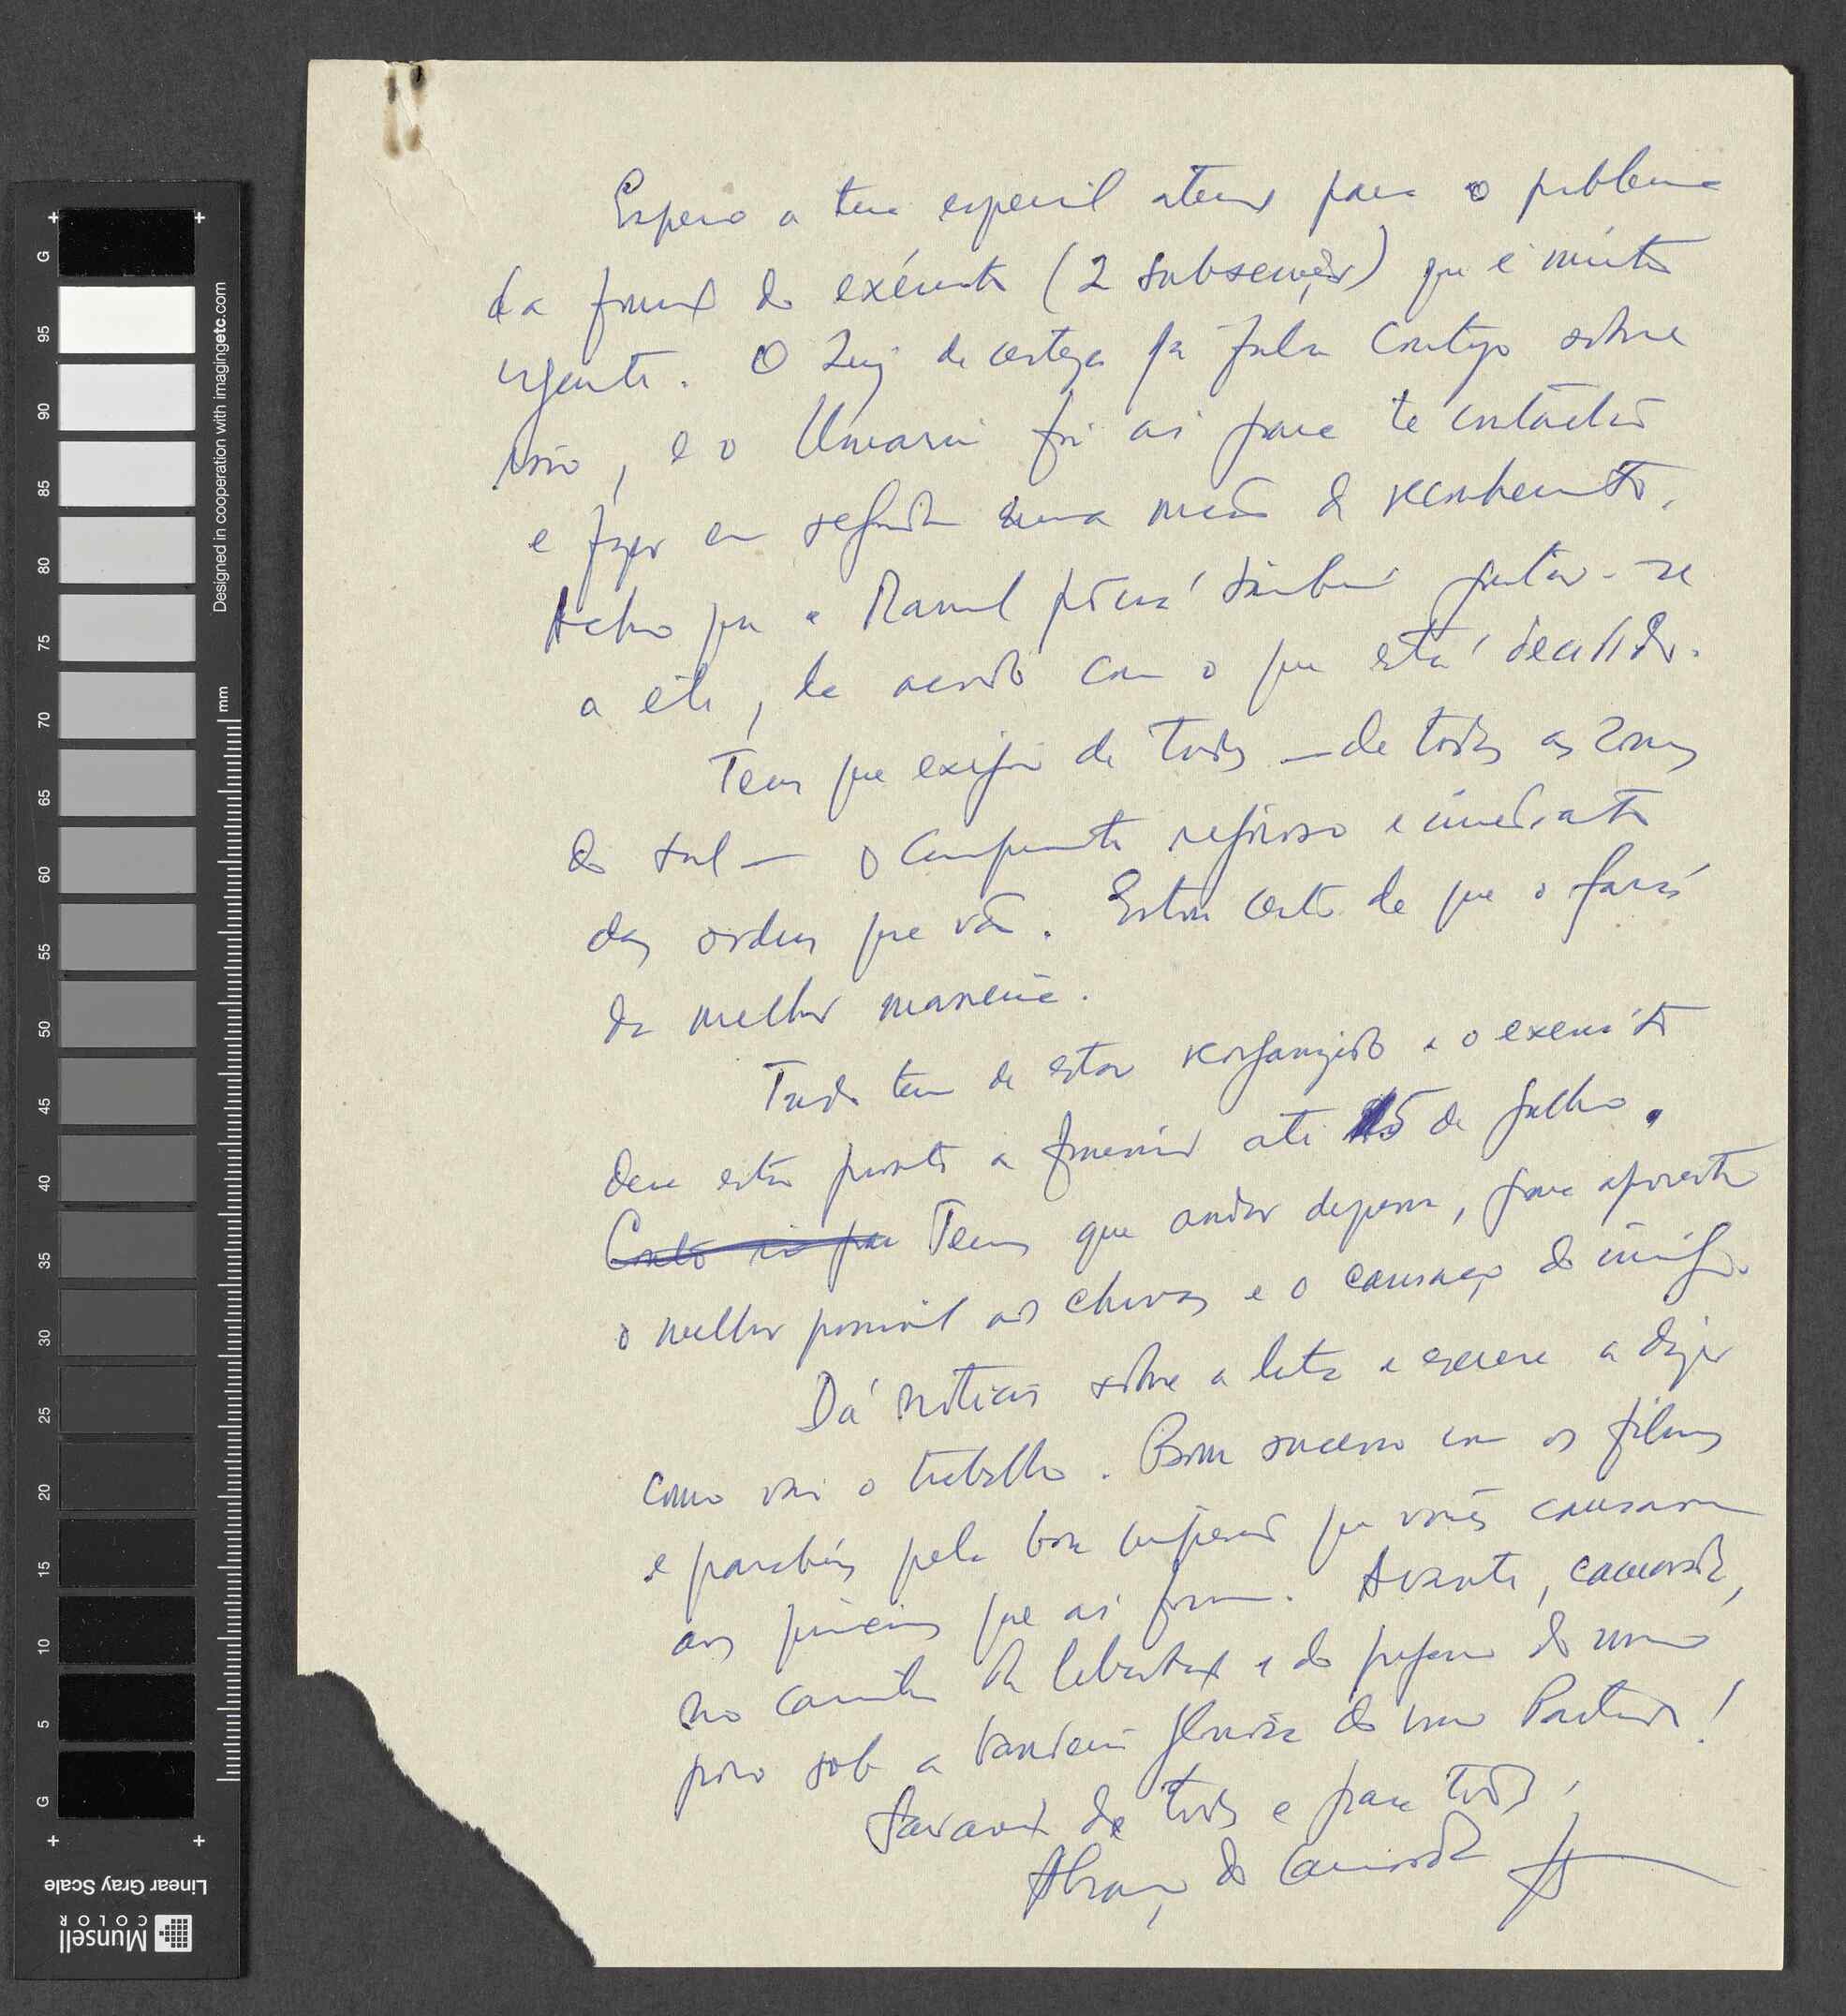 Espero a tua especial atenção para o problema
da frente do exército (2 subsecções) que é muito
urgente. O Luiz de certeza já falou contigo sobre
isso, e o Umaru foi aí para te contactar
e fazer em seguida uma missão de reconhecimento.
Acho que o Manuel poderá também juntar-se
a êle, de acordo com o que está decidido.
Tens que exigir de todos — de todas as zonas
do sul — o cumprimento rigoroso e imediato
das ordens que vão. Estou certo de que o farás
da melhor maneira.
Tudo tem de estar reorganizado e o exército
deve estar pronto a funcionar até 15 de Julho.
Tens que andar depressa, para aproveitar
o melhor possível as chuvas e o cansaço do inimigo.
Dá notícias sobre a luta e escreve a dizer
como vai o trabalho. Bom sucesso com os filmes
e parabéns pela boa impressão que vocês causaram
aos que aí foram. Avante, camarada,
no caminho da libertação e do progresso do nosso
povo sob a bandeira gloriosa do nosso Partido!
Saudações de todos e para todos.
Abraço do camarada
G
95
90
85
80
75
70
65
60
55
50
45
40
35
30
25
20
15
10
5
G
mm
Designed in cooperation with imagingetc.com
Linear Gray Scale
Munsell
COLOR